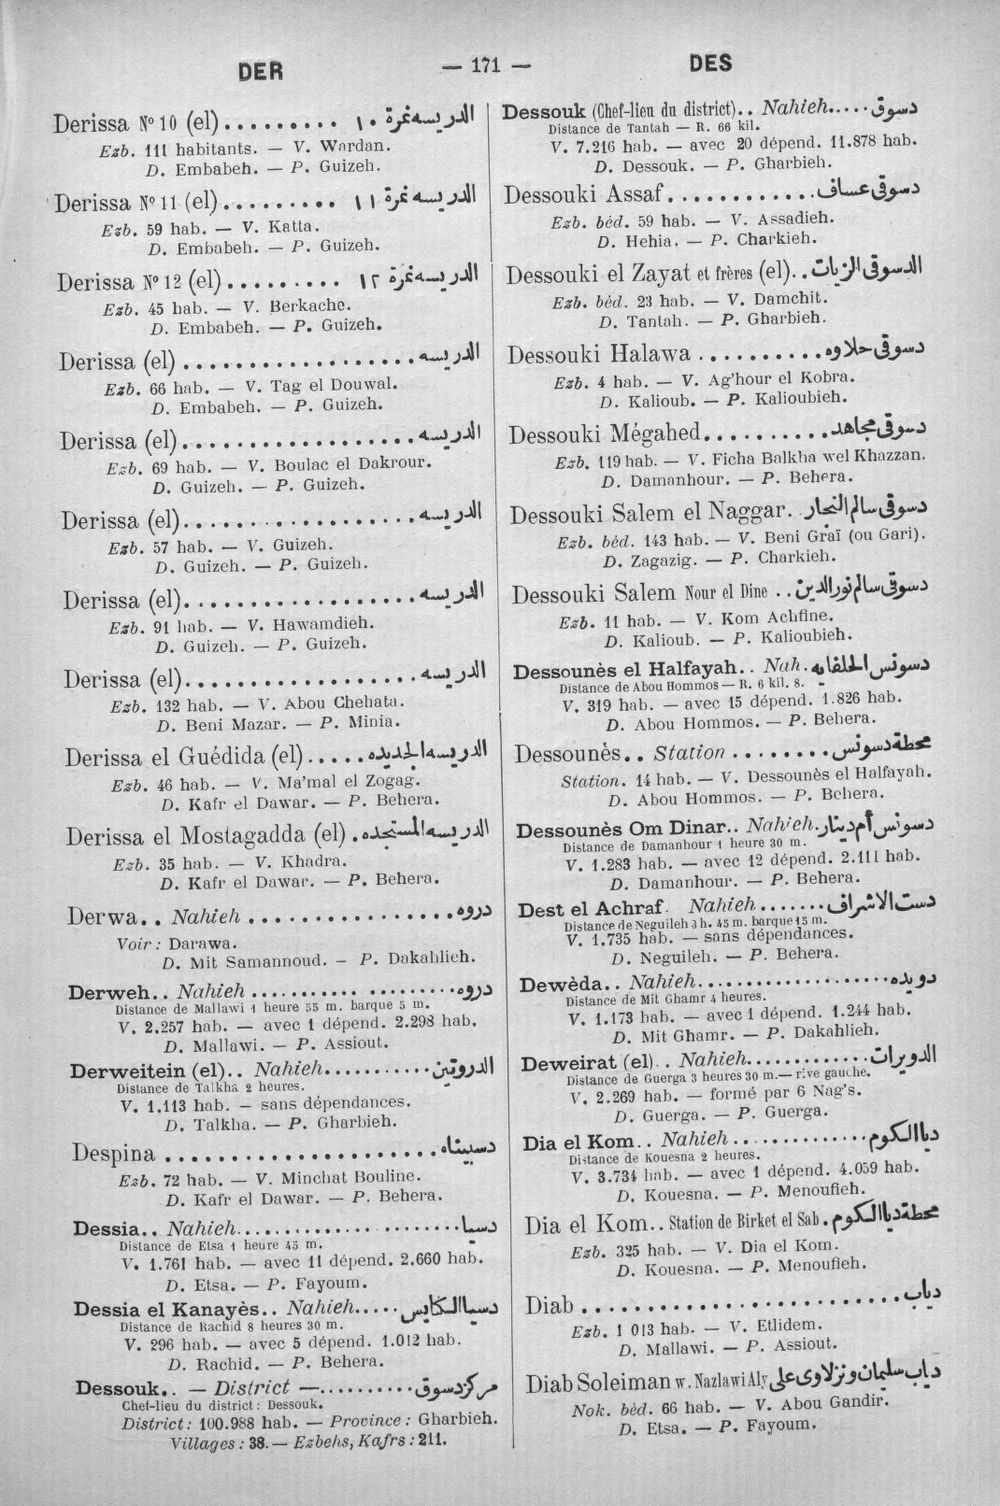 DER
— 171 —
DES
Derissa Nº 10 (el) ......... الدريسه نمرة ١٠
Ezb. 111 habitants. — V. Wardan.
D. Embabeh. — P. Guizeh.
Derissa Nº 11 (el) ......... الدريسه نمرة ١١
Ezb. 59 hab. — V. Katta.
D. Embabeh. — P. Guizeh.
Derissa Nº 12 (el) ......... الدريسه نمرة ١٢
Ezb. 45 hab. — V. Berkache.
D. Embabeh. — P. Guizeh.
Derissa (el) .................. الدريسه
Ezb. 66 hab. — V. Tag el Douwal.
D. Embabeh. — P. Guizeh.
Derissa (el) .................. الدريسه
Ezb. 69 hab. — V. Boulac el Dakrour.
D. Guizeh. — P. Guizeh.
Derissa (el) .................. الدريسه
Ezb. 57 hab. — V. Guizeh.
D. Guizeh. — P. Guizeh.
Derissa (el) .................. الدريسه
Ezb. 91 hab. — V. Hawamdieh.
D. Guizeh. — P. Guizeh.
Derissa (el) .................. الدريسه
Ezb. 132 hab. — V. Abou Chehata.
D. Beni Mazar. — P. Minia.
Derissa el Guédida (el) ..... الدريسه الجديده
Ezb. 46 hab. — V. Ma'mal el Zogag.
D. Kafr el Dawar. — P. Behera.
Derissa el Mostagadda (el) . الدريسه المستجده
Ezb. 35 hab. — V. Khadra.
D. Kafr el Dawar. — P. Behera.
Derwa.. Nahieh ................. دروه
Voir : Darawa.
D. Mit Samannoud. — P. Dakahlieh.
Derweh.. Nahieh ................. دروه
Distance de Mallawi 1 heure 55 m. barque 5 m.
V. 2.257 hab. — avec 1 dépend. 2.298 hab.
D. Mallawi. — P. Assiout.
Derweitein (el).. Nahieh ........... الدروتين
Distance de Talkha 2 heures.
V. 1.113 hab. — sans dépendances.
D. Talkha. — P. Gharbieh.
Despina ...................... دسبيناه
Ezb. 72 hab. — V. Minchat Bouline.
D. Kafr el Dawar. — P. Behera.
Dessia.. Nahieh .................. دسيا
Distance de Etsa 1 heure 45 m.
V. 1.761 hab. — avec 11 dépend. 2.660 hab.
D. Etsa. — P. Fayoum.
Dessia el Kanayès.. Nahieh ..... دسيا الكنايس
Distance de Rachid 8 heures 30 m.
V. 296 hab. — avec 5 dépend. 1.012 hab.
D. Rachid. — P. Behera.
Dessouk.. — District — .......... مركز دسوق
Chef-lieu du district : Dessouk.
District : 100.988 hab. — Province : Gharbieh.
Villages : 38. — Ezbehs, Kafrs : 211.
Dessouk (Chef-lieu du district).. Nahieh..... دسوق
Distance de Tantah — R. 66 kil.
V. 7.216 hab. — avec 20 dépend. 11.878 hab.
D. Dessouk. — P. Gharbieh.
Dessouki Assaf ............. دسوقى عساف
Ezb. béd. 59 hab. — V. Assadieh.
D. Hehia. — P. Charkieh.
Dessouki el Zayat et frères (el).. الدسوقى الزيات
Ezb. béd. 23 hab. — V. Damchit.
D. Tantah. — P. Gharbieh.
Dessouki Halawa .......... دسوقى حلاوه
Ezb. 4 hab. — V. Ag'hour el Kobra.
D. Kalioub. — P. Kalioubieh.
Dessouki Mégahed .......... دسوقى مجاهد
Ezb. 119 hab. — V. Ficha Balkha wel Khazzan.
D. Damanhour. — P. Behera.
Dessouki Salem el Naggar. . دسوقى سالم النجار
Ezb. béd. 143 hab. — V. Beni Graï (ou Gari).
D. Zagazig. — P. Charkieh.
Dessouki Salem Nour el Dine .. دسوقى سالم نور الدين
Ezb. 11 hab. — V. Kom Achfine.
D. Kalioub. — P. Kalioubieh.
Dessounès el Halfayah.. Nah. دسونس الحلفايه
Distance de Abou Hommos — R. 6 kil. 8.
V. 319 hab. — avec 15 dépend. 1.826 hab.
D. Abou Hommos. — P. Behera.
Dessounès.. Station ....... محطة دسونس
Station. 14 hab. — V. Dessounès el Halfayah.
D. Abou Hommos. — P. Behera.
Dessounès Om Dinar.. Nahieh. دسونس أم دينار
Distance de Damanhour 1 heure 30 m.
V. 1.283 hab. — avec 12 dépend. 2.111 hab.
D. Damanhour. — P. Behera.
Dest el Achraf. Nahieh ....... دست الاشراف
Distance de Neguileh 3 h. 45 m. barque 15 m.
V. 1.735 hab. — sans dépendances.
D. Neguileh. — P. Behera.
Dewèda.. Nahieh .................. دويده
Distance de Mit Ghamr 4 heures.
V. 1.173 hab. — avec 1 dépend. 1.244 hab.
D. Mit Ghamr. — P. Dakahlieh.
Deweirat (el).. Nahieh ............. الدويرات
Distance de Guerga 3 heures 30 m. — rive gauche.
V. 2.269 hab. — formé par 6 Nag's.
D. Guerga. — P. Guerga.
Dia el Kom.. Nahieh .............. ديا الكوم
Distance de Kouesna 2 heures.
V. 3.734 hab. — avec 1 dépend. 4.059 hab.
D. Kouesna. — P. Menoufieh.
Dia el Kom.. Station de Birket el Sab . محطة ديا الكوم
Ezb. 325 hab. — V. Dia el Kom.
D. Kouesna. — P. Menoufieh.
Diab ........................ دياب
Ezb. 1 013 hab. — V. Etlidem.
D. Mallawi. — P. Assiout.
Diab Soleiman w. Nazlawi Aly دياب سليمان ونزلاوى على
Nok. béd. 66 hab. — V. Abou Gandir.
D. Etsa. — P. Fayoum.